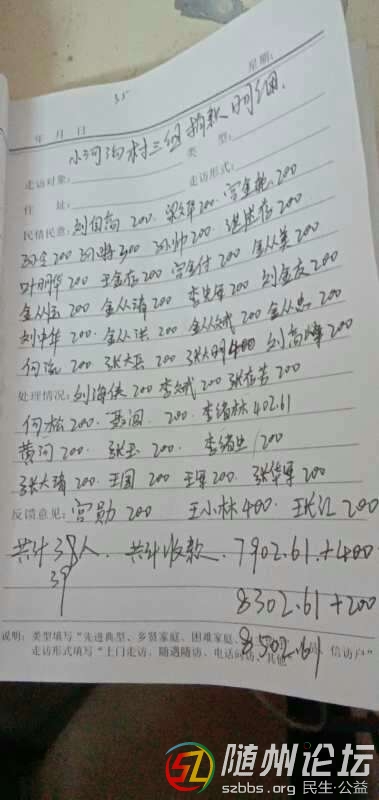 35
星期:
年 月 日
小河沟村三组捐款明细.
走访对象: 类 型:
住 址: 走访形式:
民情民意: 刘自尚 200. 200 宫金艳 200
200 300 200 200
叶丽华 200 王金存 200 宫金付 200 金从美 200
金从玉 200 金从涛 200 李先军 200 刘金友 200
刘中华 200 金从洪 200 金从斌 200 金从忠 200
何流 200 张大兵 200 张大明 400 刘高峰 200
处理情况: 刘海侠 200 李斌 200 张存芳 200
何松 200. 200. 李绪林 402.61
黄河 200. 张玉 200. 李绪 200
张大涛 200. 王国 200 王军 200. 张华军 200
反馈意见: 宫勋 200 王小林 400. 王长江 200
共计38人. 共计收款. 7902.61.+400
39
8302.61+200
8502.61
说明: 类型填写“先进典型、乡贤家庭、困难家庭、 信访户”
走访形式填写“上门走访、随遇随访、电话问访、其他
随州论坛
szbbs.org 民生·公益